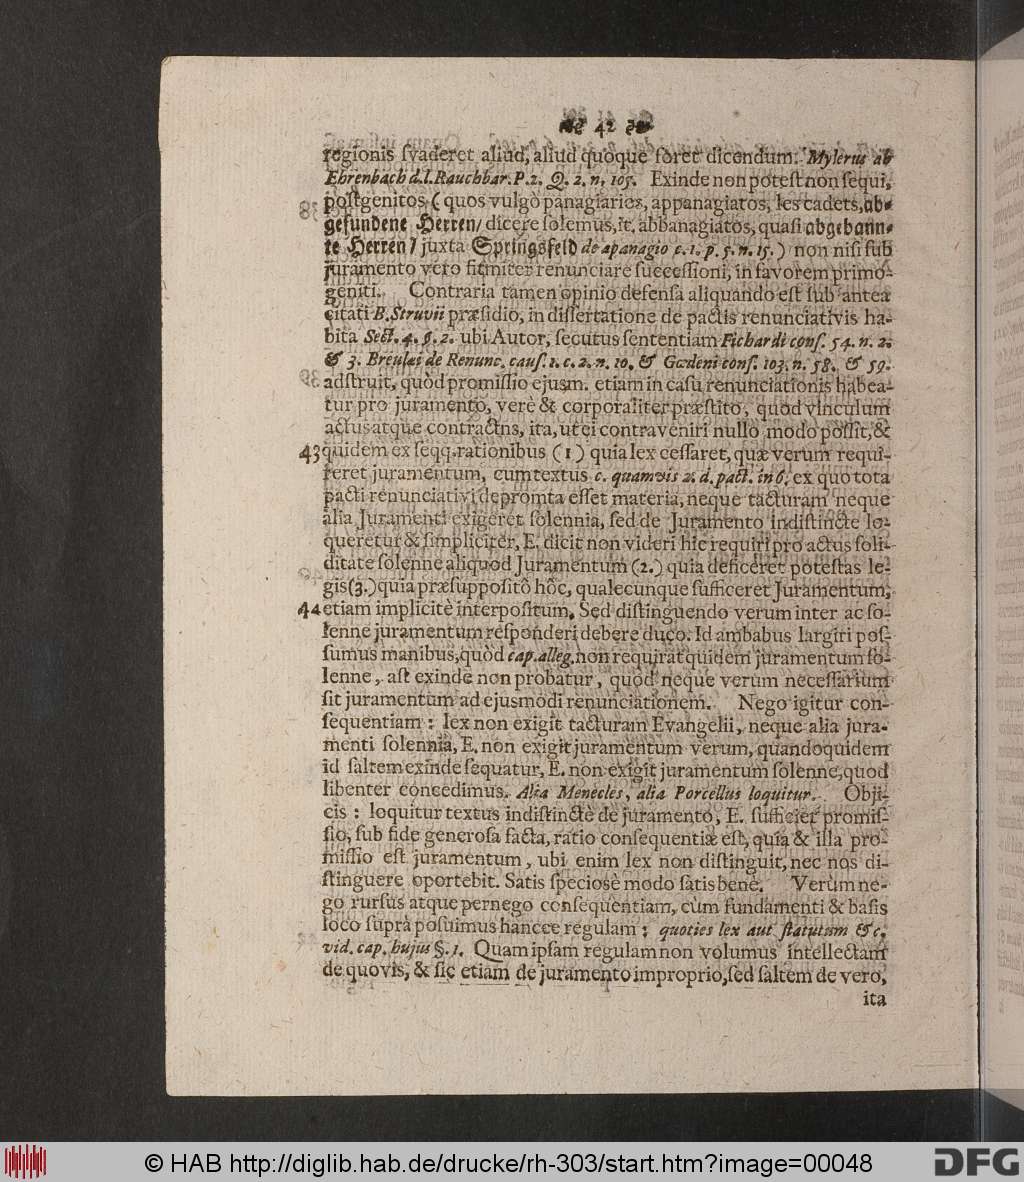 42
regionis ſvaderet aliud, aliud quoque foret dicendum. Mylerus ab
Ehrenbach d. l. Rauchbar. P. 2. Q. 2. n. 105. Exinde non poteſt non ſequi,
poſtgenitos (quos vulgò panagiaries, appanagiatos, les cadets, ab-
gefundene Herren/ dicere ſolemus, it. abbanagiatos, quaſi abgebann-
te Herren/ juxta Springsfeld de apanagio c. 1. p. 5. n. 15.) non niſi ſub
juramento vero firmiter renunciare ſucceſſioni, in favorem primo-
geniti. Contraria tamen opinio defenſa aliquando eſt ſub antea
citati B. Struvii præſidio, in diſſertatione de pactis renunciativis ha-
bita Sect. 4. §. 2. ubi Autor, ſecutus ſententiam Fichardi conſ. 54. n. 2.
& 3. Breulæi de Renunc. cauſ. 1. c. 2. n. 10. & Gœdeni conſ. 103. n. 58. & 59.
adſtruit, quòd promiſſio ejusm. etiam in caſu renunciationis habea-
tur pro juramento, verè & corporaliter præſtito, quod vinculum
actus atque contractns, ita, ut ei contraveniri nullo modo poſſit, &
43 quidem ex ſeqq. rationibus (1) quia lex ceſſaret, quæ verum requi-
reret juramentum, cum textus c. quamvis 2. d. pact. in 6. ex quo tota
pacti renunciativi depromta eſſet materia, neque tacturam neque
alia Juramenti exigeret ſolennia, ſed de Juramento indiſtincte lo-
queretur & ſimpliciter, E. dicit non videri hic requiri pro actus ſoli-
ditate ſolenne aliquod Juramentum (2.) quia deficeret poteſtas le-
gis (3.) quia præſuppoſitô hôc, qualecunque ſufficeret Juramentum,
44 etiam implicitè interpoſitum. Sed diſtinguendo verum inter ac ſo-
lenne juramentum reſponderi debere duco. Id ambabus largiri poſ-
ſumus manibus, quòd cap. alleg. non requirat quidem juramentum ſo-
lenne, aſt exinde non probatur, quòd neque verum neceſſarium
ſit juramentum ad ejusmodi renunciationem. Nego igitur con-
ſequentiam: lex non exigit tacturam Evangelii, neque alia jura-
menti ſolennia, E. non exigit juramentum verum, quandoquidem
id ſaltem exinde ſequatur, E. non exigit juramentum ſolenne, quod
libenter concedimus. Alia Menecles, alia Porcellus loquitur. Obji-
cis: loquitur textus indiſtinctè de juramento, E. ſufficiet promiſ-
ſio, ſub fide generoſa facta, ratio conſequentiæ eſt, quia & illa pro-
miſſio eſt juramentum, ubi enim lex non diſtinguit, nec nos di-
ſtinguere oportebit. Satis ſpecioſè modo ſatis benè. Verùm ne-
go rurſus atque pernego conſequentiam, cùm fundamenti & baſis
loco ſuprà poſuimus hancce regulam: quoties lex aut ſtatutum &c.
vid. cap. hujus §. 1. Quam ipſam regulam non volumus intellectam
de quovis, & ſic etiam de juramento improprio, ſed ſaltem de vero,
ita
© HAB http://diglib.hab.de/drucke/rh-303/start.htm?image=00048
DFG